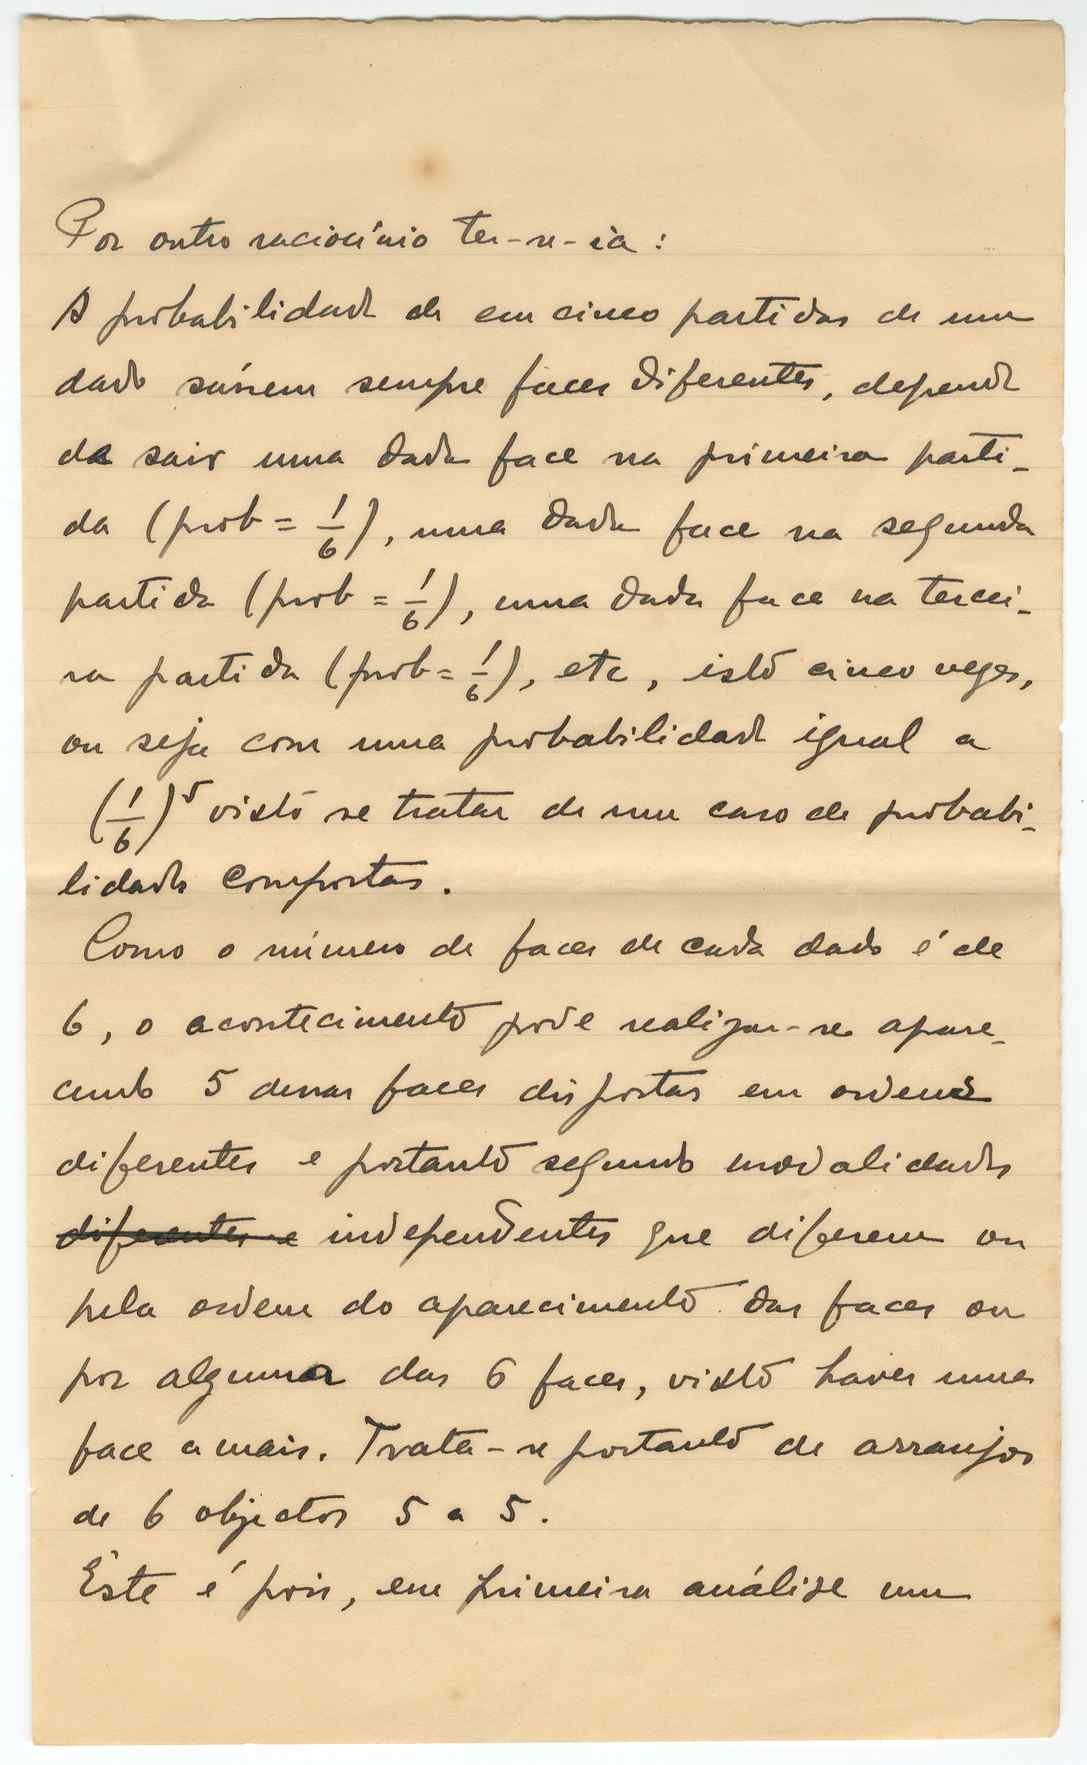 Por outro raciocínio ter-se-ia:
A probabilidade de em cinco partidas de um
dado saírem sempre faces diferentes, depende
de sair uma dada face na primeira parti-
da (prob = 1/6), uma dada face na segunda
partida (prob = 1/6), uma dada face na tercei-
ra partida (prob = 1/6), etc, isto cinco vezes,
ou seja com uma probabilidade igual a
(1/6)^5 visto se tratar de um caso de probabi-
lidades compostas.
Como o número de faces de cada dado é de
6, o acontecimento pode realizar-se apare-
cendo 5 dessas faces dispostas em ordens
diferentes e portanto segundo modalidades
diferentes e independentes que diferem ou
pela ordem do aparecimento das faces ou
por alguma das 6 faces, visto haver uma
face a mais. Trata-se portanto de arranjos
de 6 objectos 5 a 5.
Êste é pois, em primeira análise um